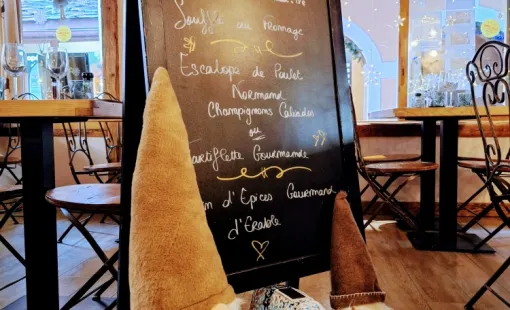 Soufflé au fromage
Escalope de Poulet
Normand
Champignons Calvados
ou
Tartiflette Gourmande
d'Épices Gourmand
d'Érable